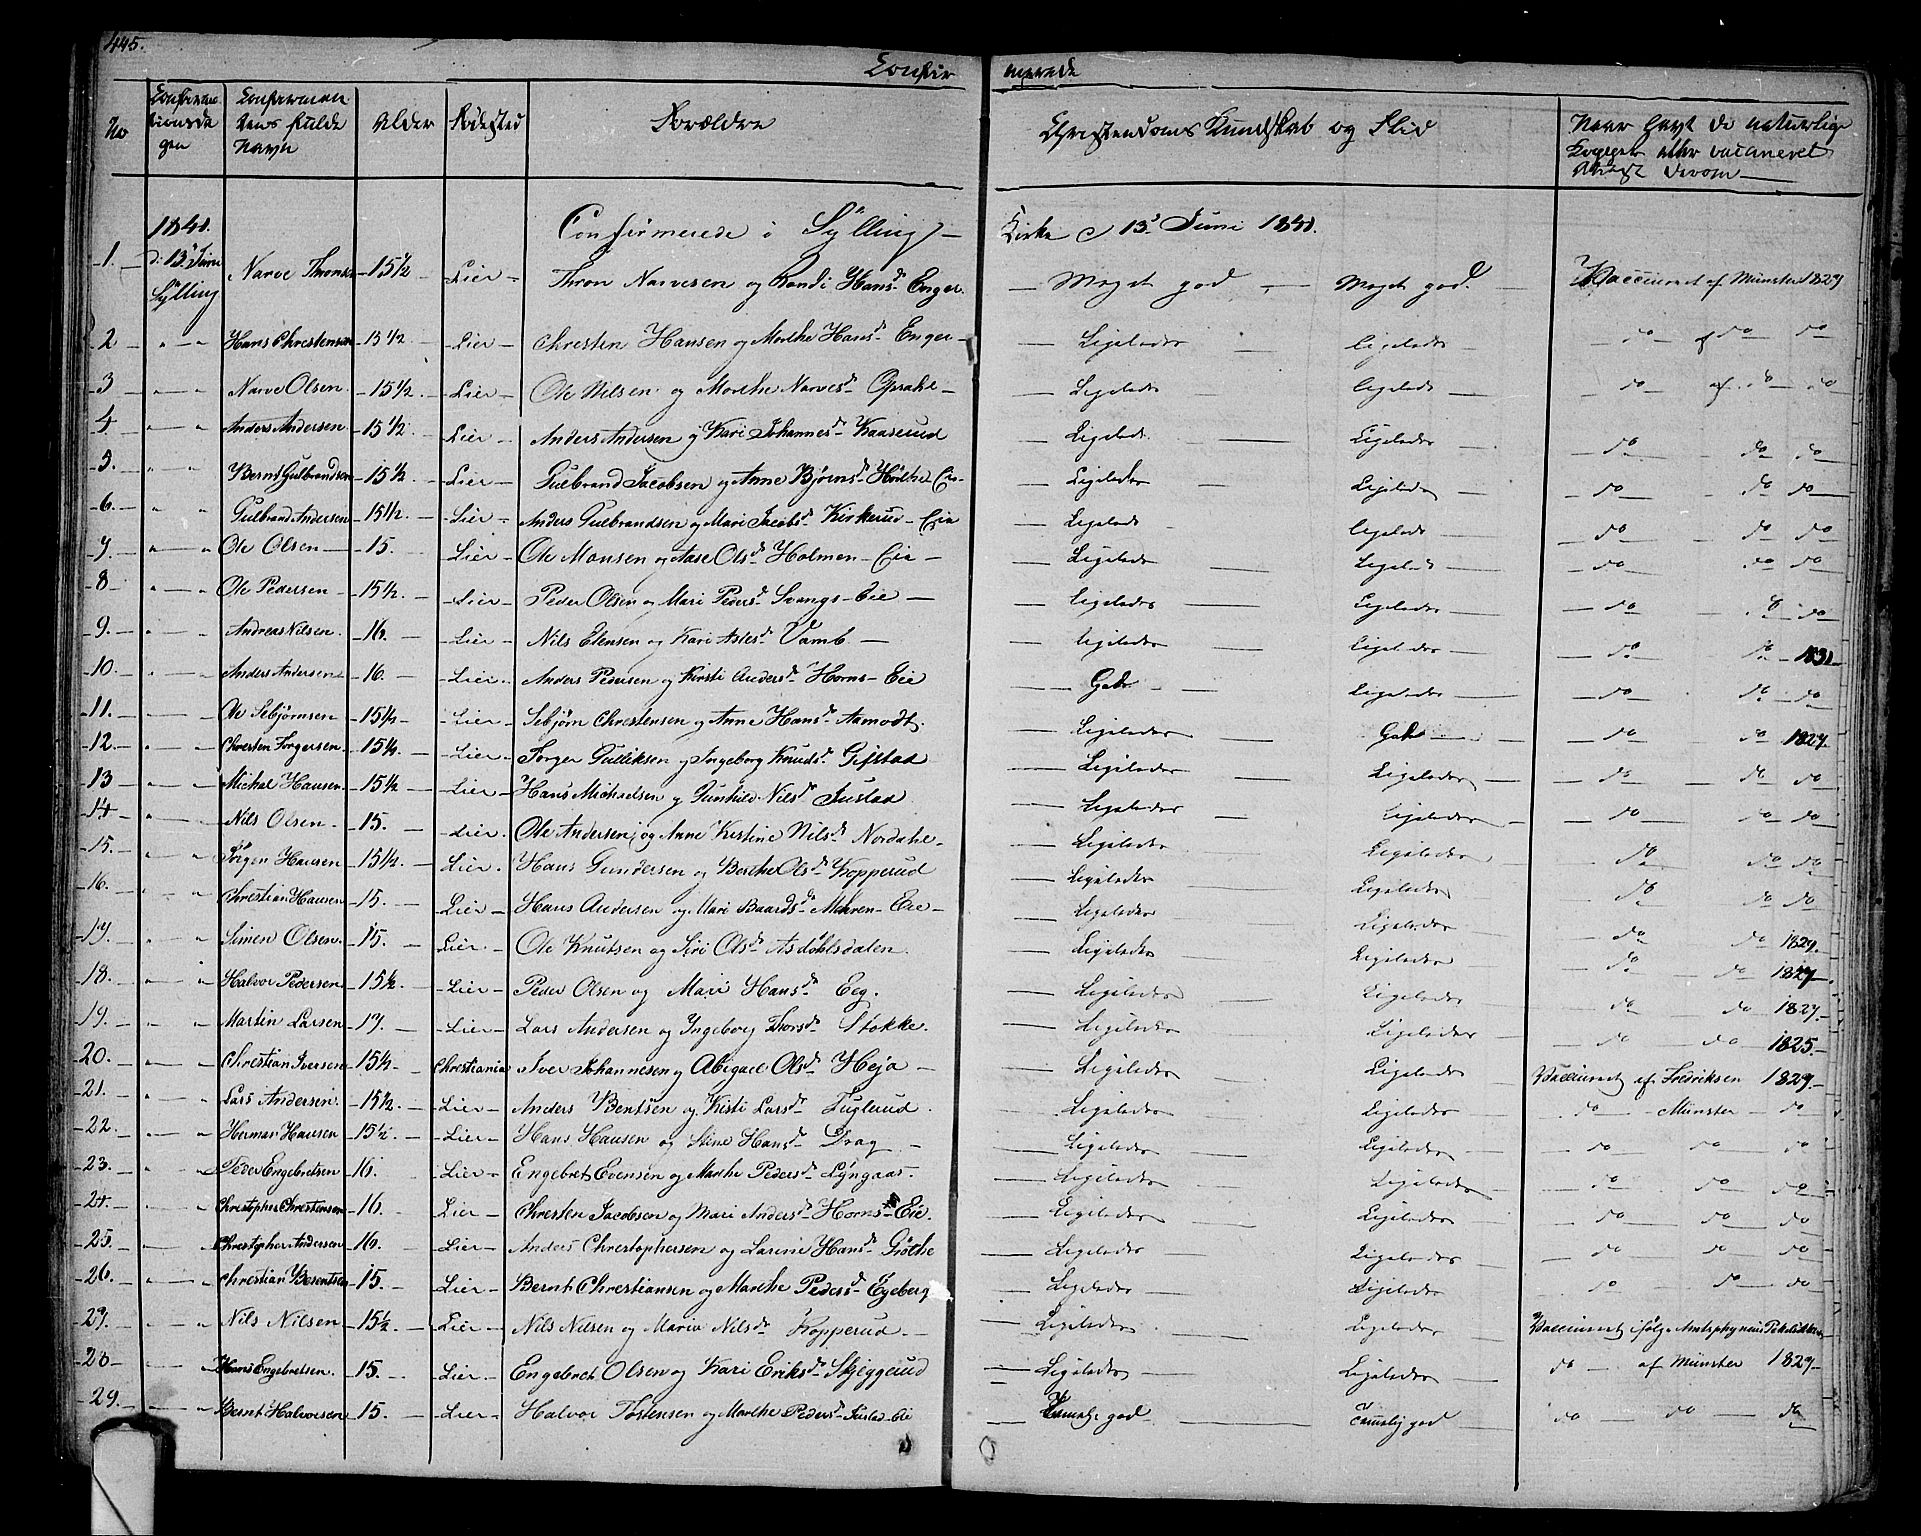 445.
Confir merede
No | Confirma tionsda gen | Confirman dens fulde Navn | Alder | Fødested | Forældre | Christendoms Kundskab og Flid | Naar havt de naturlige Kopper eller vaccineret
1841. Confirmerede i Sylling Kirke d 13d Juni 1841.
1. d: 13 Juni Sylling Narve Thronsen 15½ Lier Thron Narvesen og Randi Hansd Enger. Meget god Meget god. Vaccineret af Münster 1827
2 " " Hans Chrestensen 15½ Lier Chresten Hansen og Marthe Hansd Enger Ligeledes Ligeledes do af do do
3 " " Narve Olsen 15½ Lier Ole Nilsen og Marthe Narvesd Opsahl Ligeledes Ligeleds do af do do
4 " " Anders Andersen 15½ Lier Anders Andersen og Kari Johannesd Kaaserud Ligeled. Ligeledes do do do
5. " " Bernt Gulbrandsen 15½ Lier Gulbrand Jacobsen og Anne Bjørnsd Hørthe Eie Ligeledes Ligeledes do do do
6. " " Gulbrand Andersen 15½ Lier Anders Gulbrandsen og Mari Jacobsd Kirkerud Eie Ligeleds Ligeledes do do do
7. " " Ole Olsen 15. Lier Ole Monsen og Aase Olsd Holmen Eie Ligeledes Ligeleds do do do
8 " " Ole Pedersen 15½ Lier Peder Olsen og Mari Pedersd Svangs Eie Ligeledes Ligeledes do do do
9. " " Andreas Nilsen. 16. Lier Nils Ellensen og Kari Aslesd Vamb Ligeledes Ligeledes do do 1831
10. " " Anders Andersen 16. Lier Anders Pedersen og Kirsti Andersd Horns Eie Godt Ligeledes do do do
11. " Ole Sebjørnsen 15½ Lier Sebjørn Chrestensen og Anne Hansd Aamodt. Ligeledes Godt do do 1827.
12. " " Chresten Torgersen 15½ Lier Torger Gulliksen og Ingeborg Knudsd Gifstad Ligeledes Ligeledes do do do
13 " " Michal Hansen 15½ Lier Hans Michaelsen og Gunhild Nilsd Justad Ligeledes Ligeledes do do do
14 " " Nils Olsen 15. Lier Ole Andersen og Anne Kirstine Nilsd Nordahl Ligeledes Ligeledes do do do
15. " " Jørgen Hansen 15½ Lier Hans Gundersen og Berthe Olsd Kopperud Ligeledes Ligeledes do do do
16. " " Chrestian Hansen 15. Lier Hans Andersen og Mari Baardsd Mehren Eie Ligeledes Ligeledes do do 1827.
17. " " Simen Olsen. 15. Lier Ole Knutsen og Siri Olsd Asdøhlsdalen. Ligeledes Ligeledes do do 1827
18. " " Halvor Pedersen 15½ Lier Peder Olsen og Mari Hansd Eeg. Ligeledes Ligeledes do do 1827.
19. " " Martin Larsen 17. Lier Lars Andersen og Ingeborg Thorsd Stokke. Ligeledes Ligeledes do do 1825.
20. " " Chrestian Iversen 15½ Chrestiania Iver Johannesen og Abigael Olsd Heja Ligeledes Ligeleds Vaccineret af Fredriksen 1827
21. " " Lars Andersen. 15½. Lier Anders Bentsen og Kisti Larsd Tuglerud. Ligeledes Ligeledes do Münster do
22. " " Herman Hansen 15½ Lier Hans Hansen og Stine Hansd Drag Ligeledes Ligeledes do do do
23. " " Peder Engebretsen 16. Lier Engebret Evensen og Marthe Pedersd Lyngaas. Ligeledes Ligeledes do do do
24. " " Christopher Chrestensen 16. Lier Chresten Jacobsen og Mari Andersd Horns Eie. Ligeledes Ligeledes do do do
25. " " Chrestopher Andersen 16. Lier Anders Chrestophersen og Larine Hansd Gjøthe Ligeledes Ligeledes do do do
26. " " Chrestian Berntsen 15. Lier Bernt Chrestiansen og Marthe Pedersd Egeberg Ligeledes Ligeledes do do do
27. " " Nils Nilsen 15½. Lier Nils Nilsen og Maria Nilsd Kopperud. Ligeledes Ligeledes Vaccineret ifølge
28 " " Hans Engebretsen. 15. Lier Engebret Olsen og Kari Eriksd Skjeggerud Ligeledes Ligeledes do af Münster 1827
29. " " Bernt Halvorsen 15. Lier Halvor Tostensen og Marthe Pedersd Justad Eie Temelig god Temelig god do do do